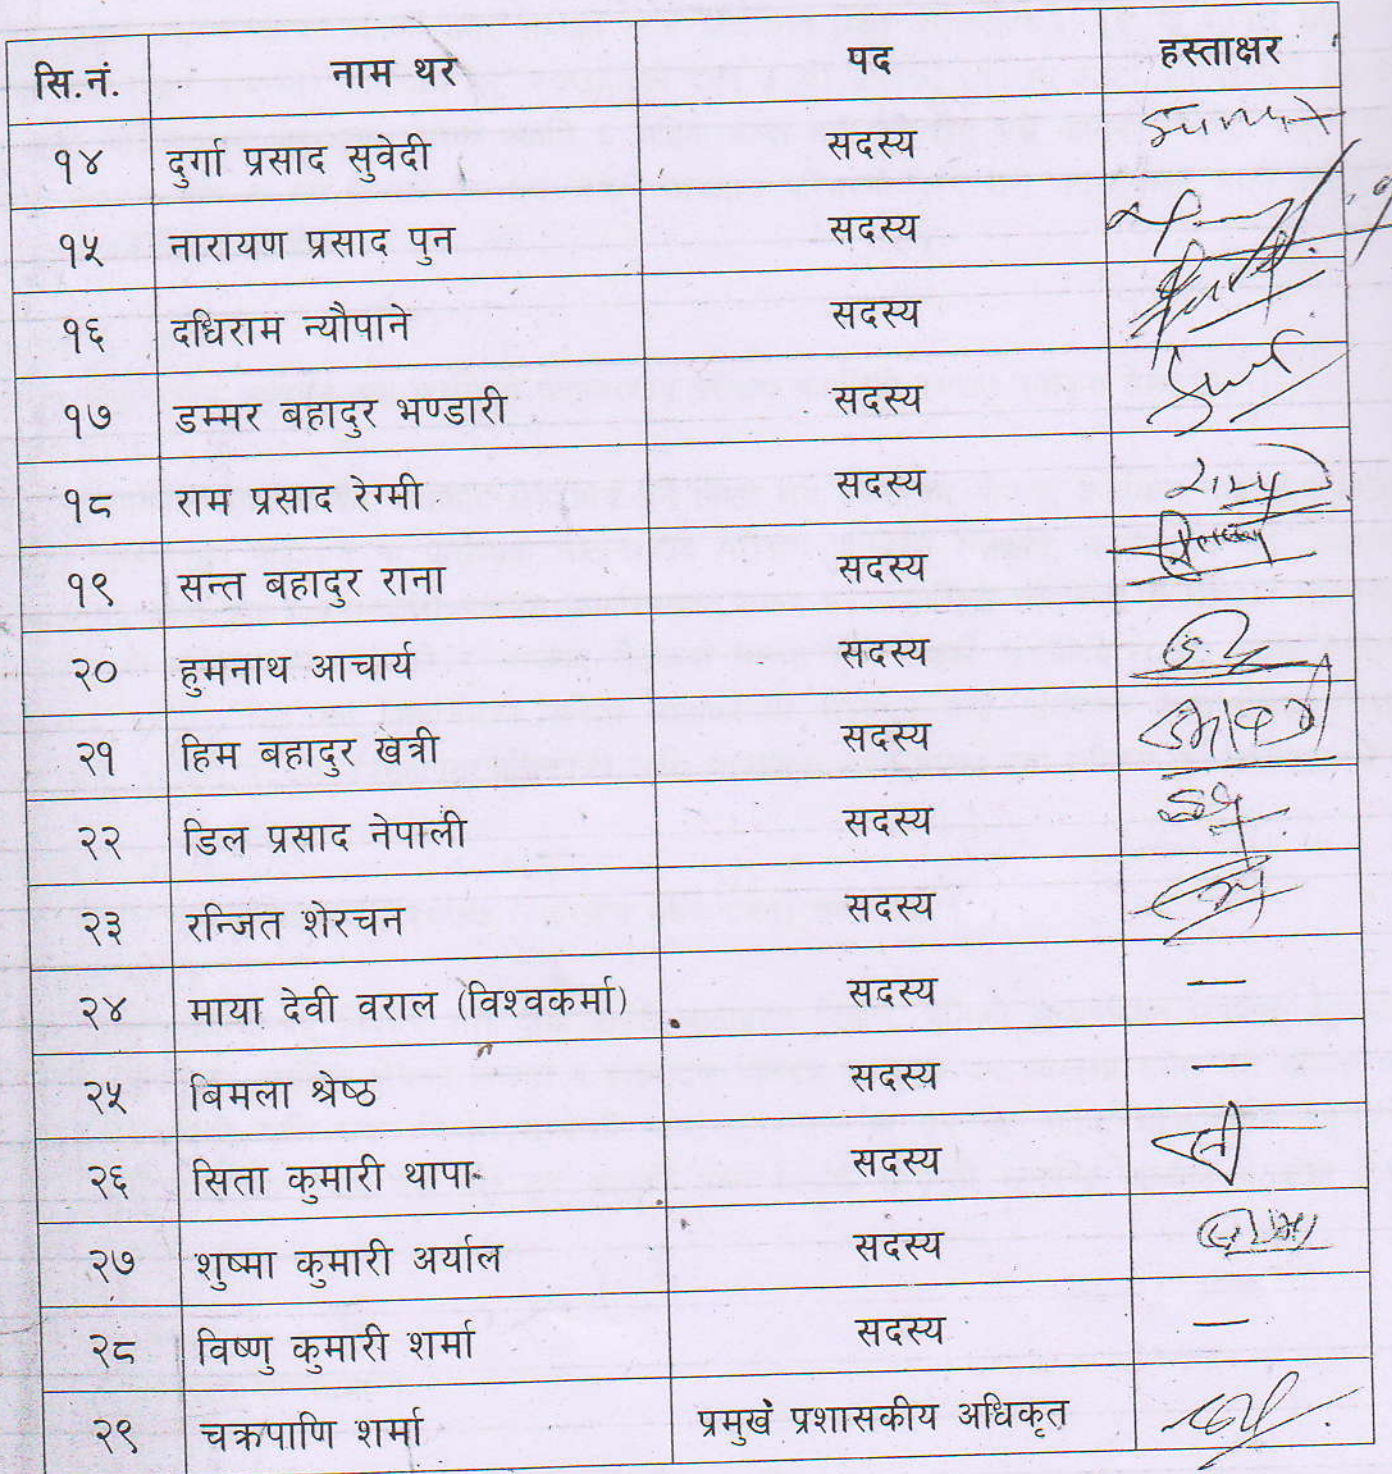 सि.नं. नाम थर पद हस्ताक्षर
१४ दुर्गा प्रसाद सुवेदी सदस्य
१५ नारायण प्रसाद पुन सदस्य
१६ दधिराम न्यौपाने सदस्य
१७ डम्मर बहादुर भण्डारी सदस्य
१८ राम प्रसाद रेग्मी सदस्य
१९ सन्त बहादुर राना सदस्य
२० हुमनाथ आचार्य सदस्य
२१ हिम बहादुर खत्री सदस्य
२२ डिल प्रसाद नेपाली सदस्य
२३ रन्जित शेरचन सदस्य
२४ माया देवी वराल (विश्वकर्मा) सदस्य —
२५ बिमला श्रेष्ठ सदस्य -
२६ सिता कुमारी थापा सदस्य
२७ शुष्मा कुमारी अर्याल सदस्य
२८ विष्णु कुमारी शर्मा सदस्य —
२९ चक्रपाणि शर्मा प्रमुख प्रशासकीय अधिकृत